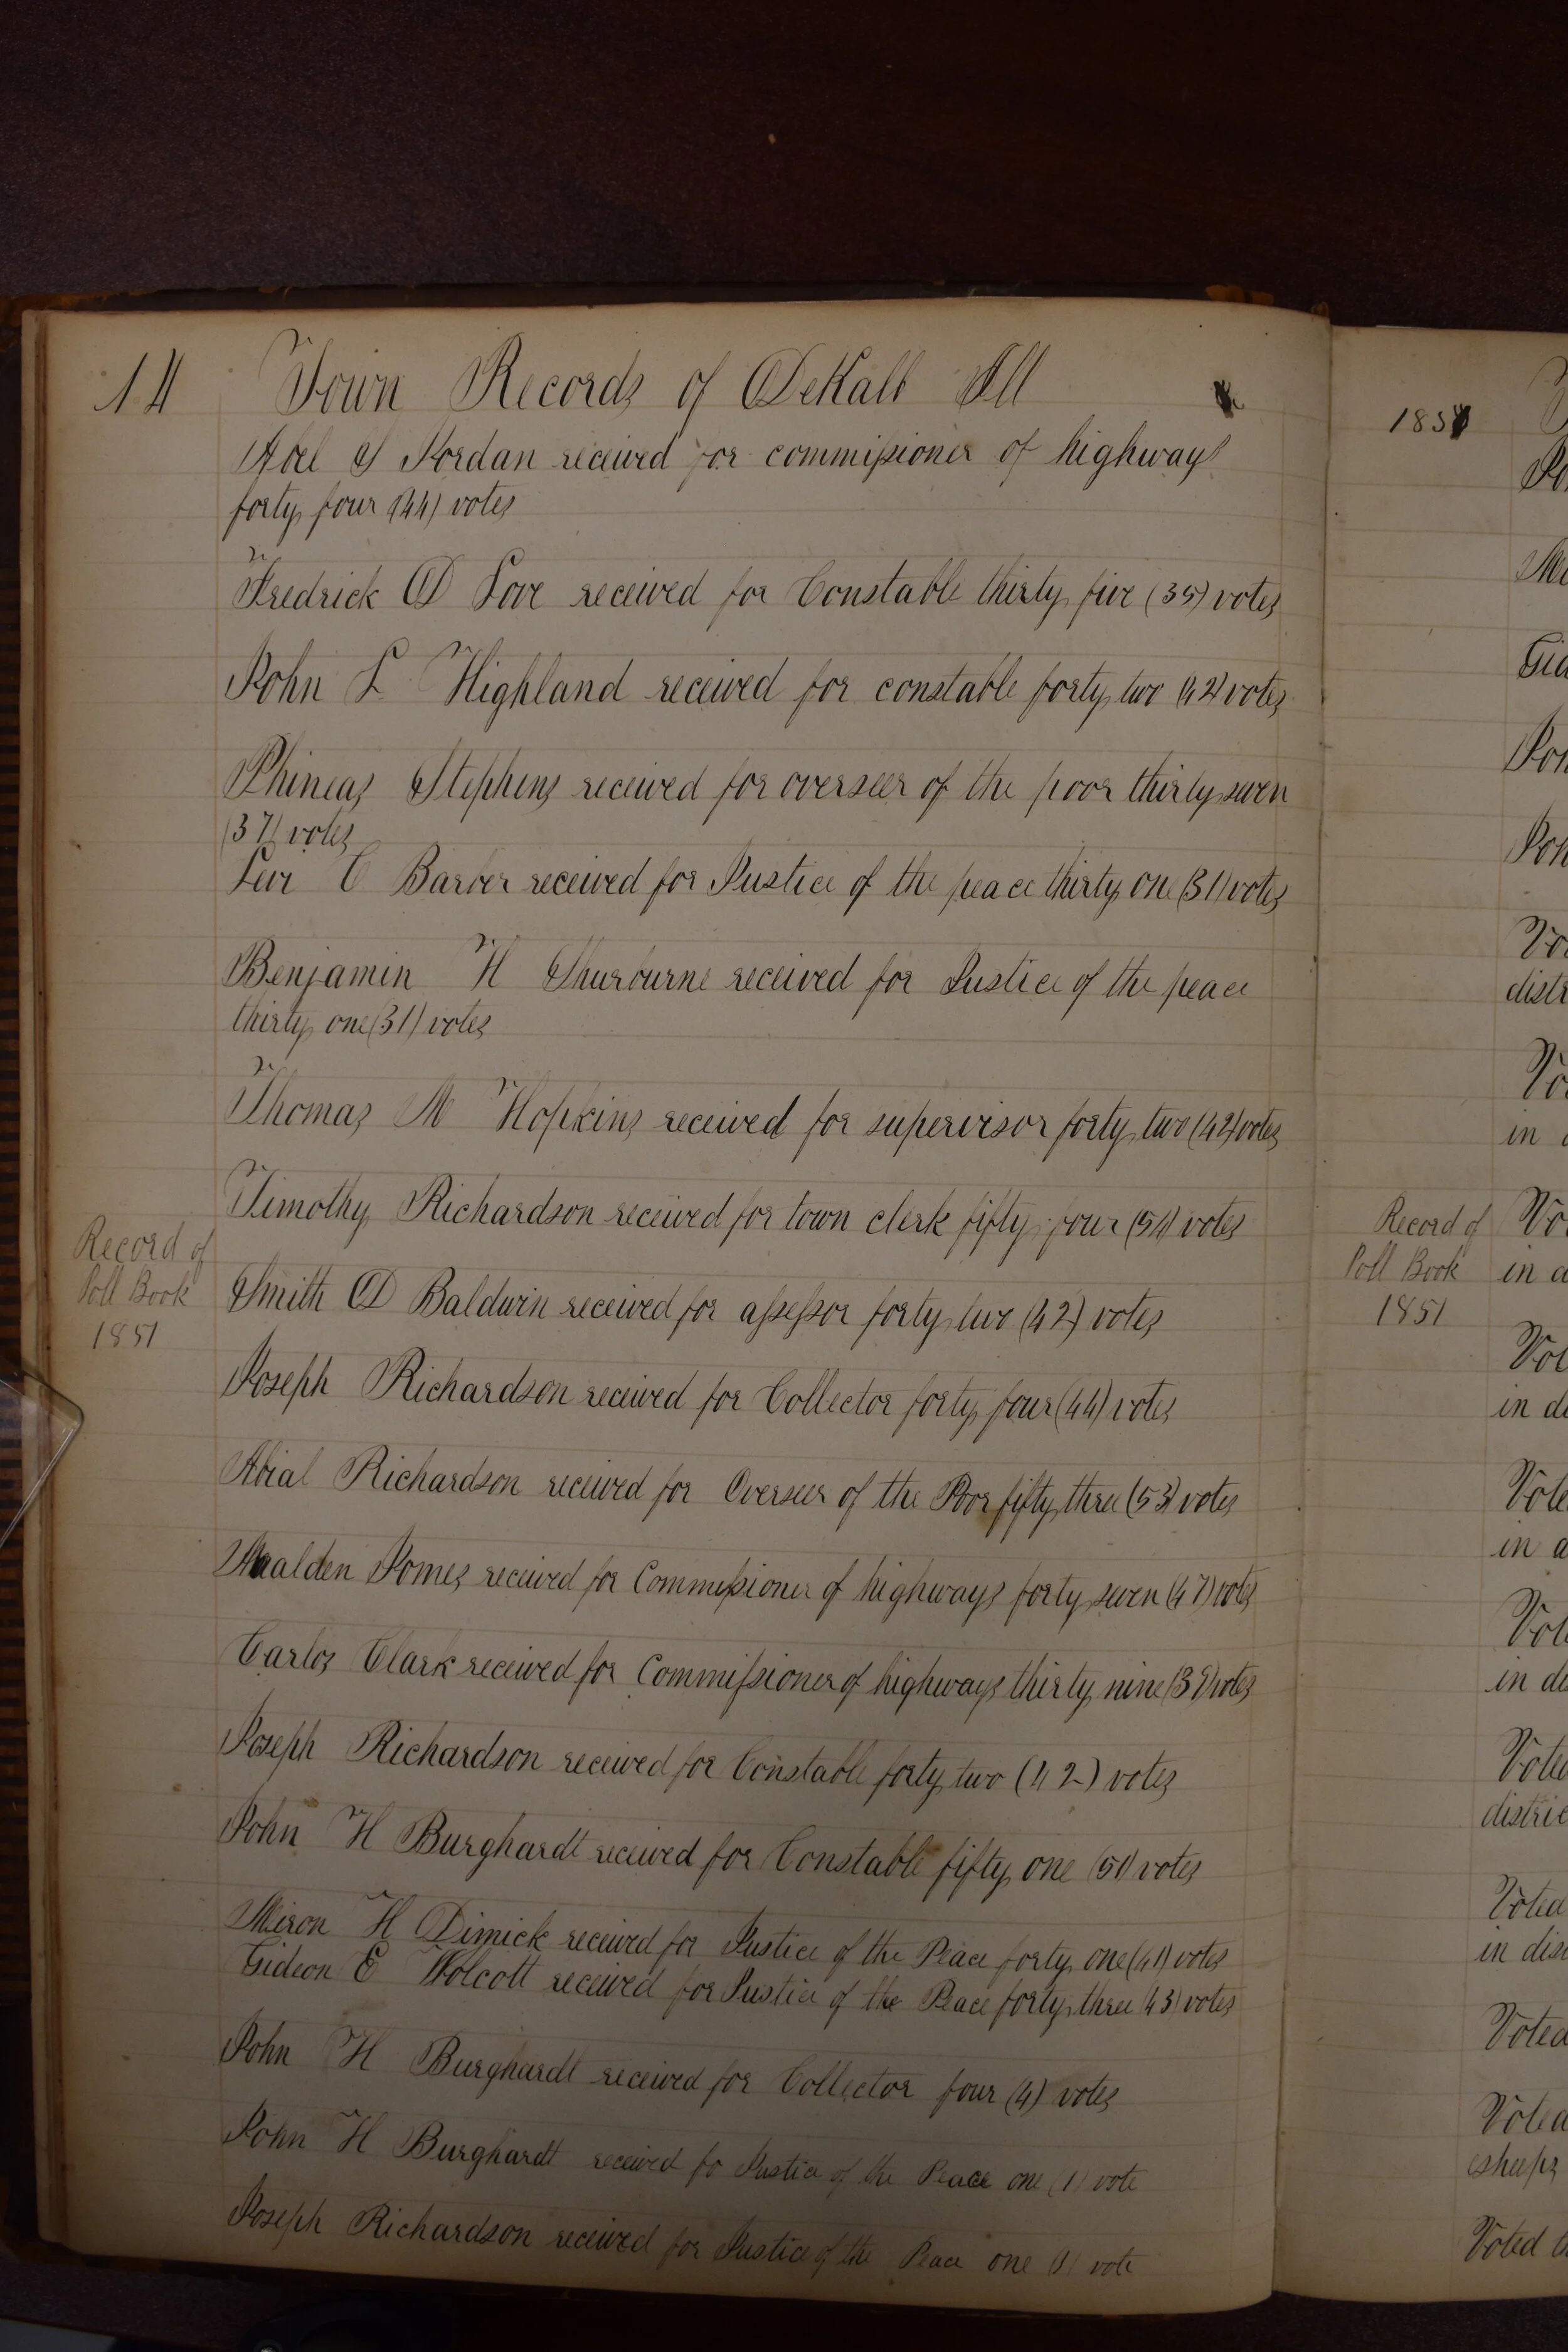 14 Town Records of DeKalb Ill
Abel S Jordan received for commissioner of highways
forty four (44) votes
Fredrick D Love received for Constable thirty five (35) votes
John L Highland received for constable forty two (42) votes
Phineas Stephens received for overseer of the poor thirty seven
(37) votes
Levi C Barber received for Justice of the peace thirty one (31) votes
Benjamin H Shurburne received for Justice of the peace
thirty one (31) votes
Thomas M Hopkins received for supervisor forty two (42) votes
Timothy Richardson received for town clerk fifty four (54) votes
Record of
Poll Book
1851
Smith D Baldwin received for assessor forty two (42) votes
Joseph Richardson received for Collector forty four (44) votes
Abial Richardson received for Overseer of the Poor fifty three (53) votes
Jomes received for Commissioner of highways forty seven (47) votes
Carlos Clark received for Commissioner of highways thirty nine (39) votes
Joseph Richardson received for Constable forty two (42) votes
John H Burghardt received for Constable fifty one (51) votes
Miron H Dimick received for Justice of the Peace forty one (41) votes
Gideon E Wolcott received for Justice of the Peace forty three (43) votes
John H Burghardt received for Collector four (4) votes
John H Burghardt received fo Justice of the Peace one (1) vote
Joseph Richardson received for Justice of the Peace one (1) vote
185
Gid
distr
in
Record of
Poll Book
1851
in a
in di
in a
in di
distric
Voted
in dis
Voted
Voted
sheeps
Voted